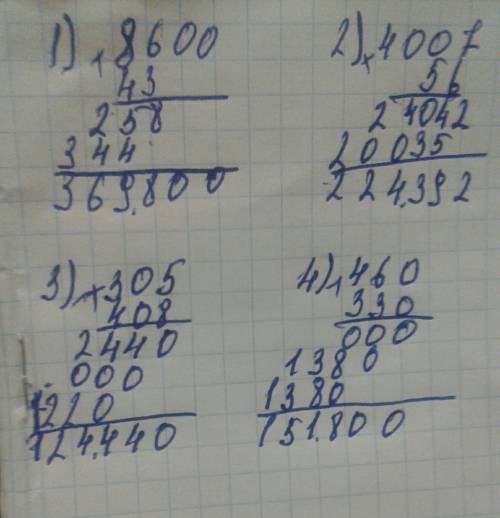 1) × 8600
43
258
344
369.800
2) × 4007
56
24042
20035
224.392
3) × 305
408
2440
000
1220
124.440
4) × 460
330
000
1380
1380
151.800